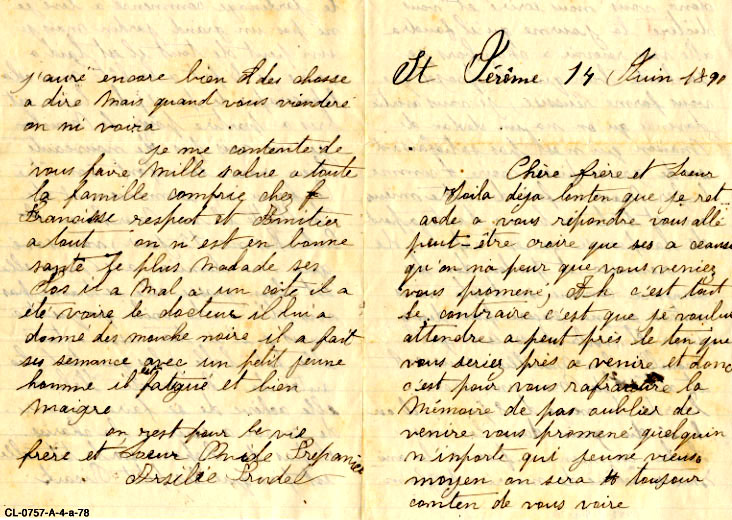 j'auré encore bien des chosse
a dire mais quand vous vienderé
on ni voira
je me contente de
vous faire mille salue a toute
la famille comprie chez
Francoisse respect et Amitier
a tout on n'est en bonne
santé le plus malade ses
Jos il a mal a un côté il a
été voire le docteur il lui a
donné des mouche noire il a fait
ses semance avec un petit jeune
homme il fatigue et bien
maigre
on rest pour la vie
frère et Soeur Ovide Trepanier
Arsilie Trudel
St Jérôme 14 Juin 1890
Chère frère et Soeur
Voila déja lonten que je ret
arde a vous répondre vous allé
peut-être croire que ses a ceause
qu'on na peur que vous veniez
vous promené, Ah c'est tout
le contraire c'est que je voulue
attendre a peut près le ten que
vous seriez près a venire et donc
c'est pour vous rafraicire la
Mémoire de pas oublier de
venire vous promené quelquin
n'importe qui jeune vieux
moyen on sera toujour
conten de vous voire
CL-0757-A-4-a-78